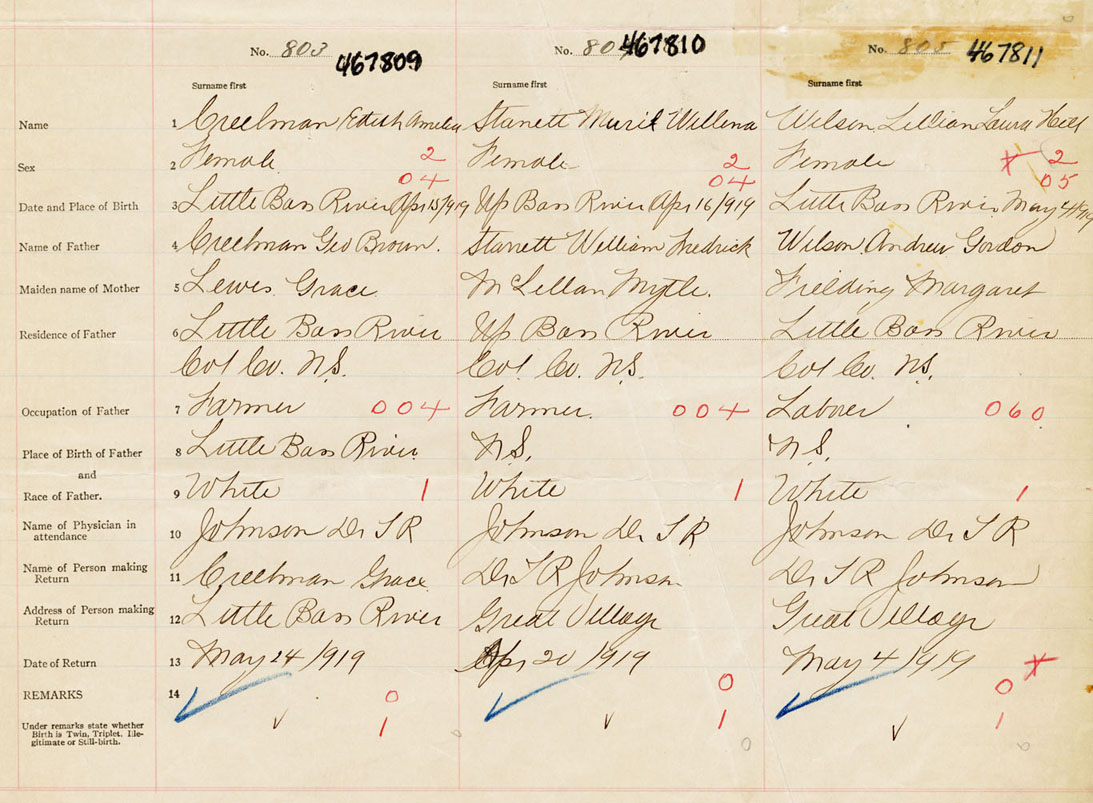 No. 803 467809
No. 80 467810
No. 805 467811
Surname first
Surname first
Surname first
Name 1 Creelman Edith Amelia Starrett Muriel Willena Wilson Lillian Laura Hill
Sex 2 Female 2 Female 2 Female 2
04 04 05
Date and Place of Birth 3 Little Bass River Apr 15/1919 Up Bass River Apr 16/1919 Little Bass River May 4/1919
Name of Father 4 Creelman Geo Brown. Starrett William Fredrick Wilson Andrew Gordon
Maiden name of Mother 5 Lewis Grace McLellan Myrtle. Fielding Margaret
Residence of Father 6 Little Bass River Up Bass River Little Bass River
Col Co. N.S. Col. Co. N.S. Col Co. N.S.
Occupation of Father 7 Farmer 004 Farmer. 004 Laborer 060
Place of Birth of Father 8 Little Bass River N.S. N.S.
and
Race of Father. 9 White 1 White 1 White 1
Name of Physician in
attendance 10 Johnson Dr T R Johnson Dr T R Johnson Dr T R
Name of Person making
Return 11 Creelman Grace Dr T R Johnson Dr T R Johnson
Address of Person making
Return 12 Little Bass River Great Village Great Village
Date of Return 13 May 24 1919 Apr 20 1919 May 4 1919
REMARKS 14 0 0 0
Under remarks state whether
Birth is Twin, Triplet, Ille-
gitimate or Still-birth. 1 1 1